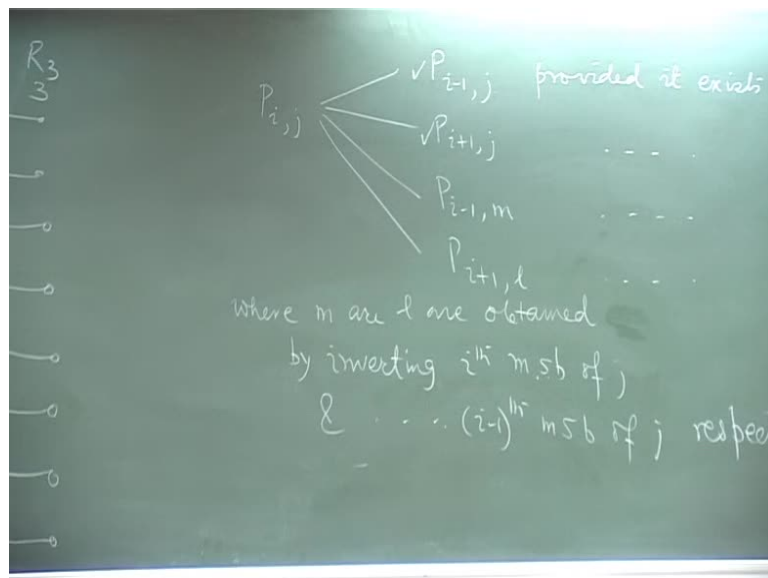 R3
3
P i,j
✓P i-1, j provided it exists
✓P i+1, j - - - .
P i-1, m . - - -
P i+1, l . - - .
where m are l are obtained
by inverting i th m.sb of j
& . . . . (i-1) th msb of j respec